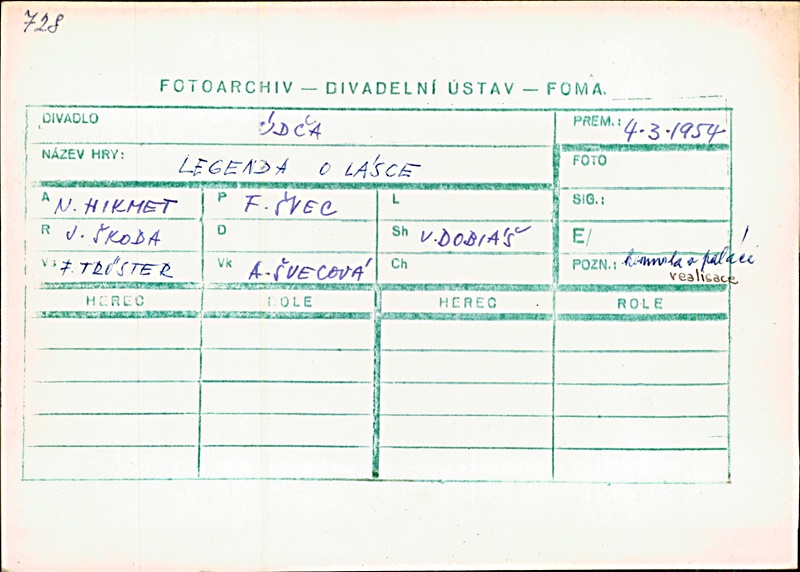 728
FOTOARCHIV — DIVADELNÍ ÚSTAV — FOMA.
DIVADLO ÚDČA PREM.: 4·3·1954
NÁZEV HRY: LEGENDA O LÁSCE FOTO
A N. HIKMET P F. ŠVEC L SIG.:
R J. ŠKODA D Sh V. DOBIÁŠ E/
Vs F. TRÖSTER Vk A. ŠVECOVÁ Ch POZN.: v paláci
realisace
HEREC ROLE HEREC ROLE